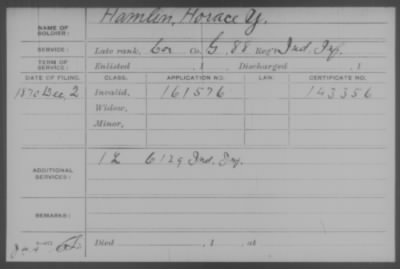 Hamlin, Horace Y.
NAME OF SOLDIER:
SERVICE: Late rank, Cor Co. G, 88 Reg't Ind. Inf.
TERM OF SERVICE: Enlisted , 1 Discharged , 1
DATE OF FILING. CLASS. APPLICATION NO. LAW. CERTIFICATE NO.
1870 Dec, 2 Invalid, 161576 143356
Widow,
Minor,
ADDITIONAL SERVICES: 129 Ind. Inf.
REMARKS:
Died , 1 , at